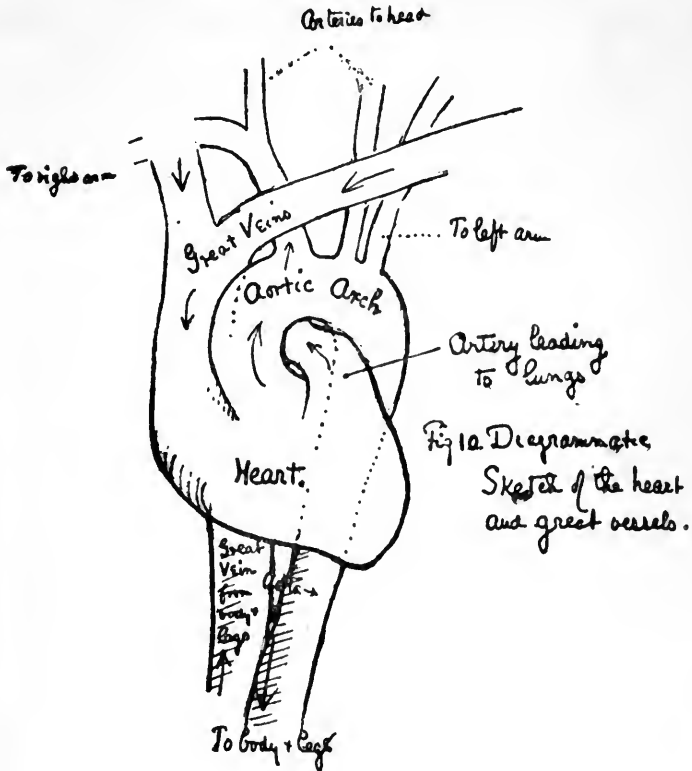 Arteries to head
To right arm
Great Veins
To left arm
Aortic Arch
Artery leading
to lungs
Fig 1a Diagrammatic
Sketch of the heart
and great vessels.
Heart.
Great
Vein
from
body +
legs
Aorta
To body + legs